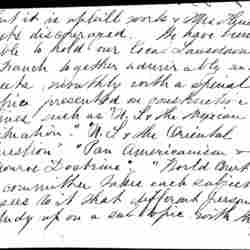 but it is uphill work & Mrs
discouraged. We have been
able to hold our local
branch together admirably and
meets monthly with a special
topic presented in constructive
lines such as "U.S. & the Mexican
situation" "U.S. & the Oriental
question" "Pan Americanism &
Monroe Doctrine" "World Court
committee takes each subject
sees to it that different person
study up on a sub topic with the